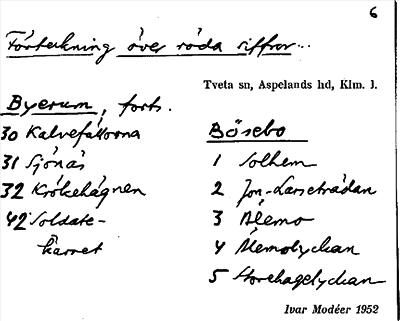 6
Förteckning över röda siffror...
Tveta sn, Aspelands hd, Klm. l.
Byerum, forts.
30 Kalvefållorna
31 Sjönäs
32 Krökehägnen
42 Soldate-
kärret
Bösebo
1 Solhem
2 Jon-Larsetrådan
3 Älemo
4 Älemolyckan
5 Storehagelyckan
Ivar Modéer 1952